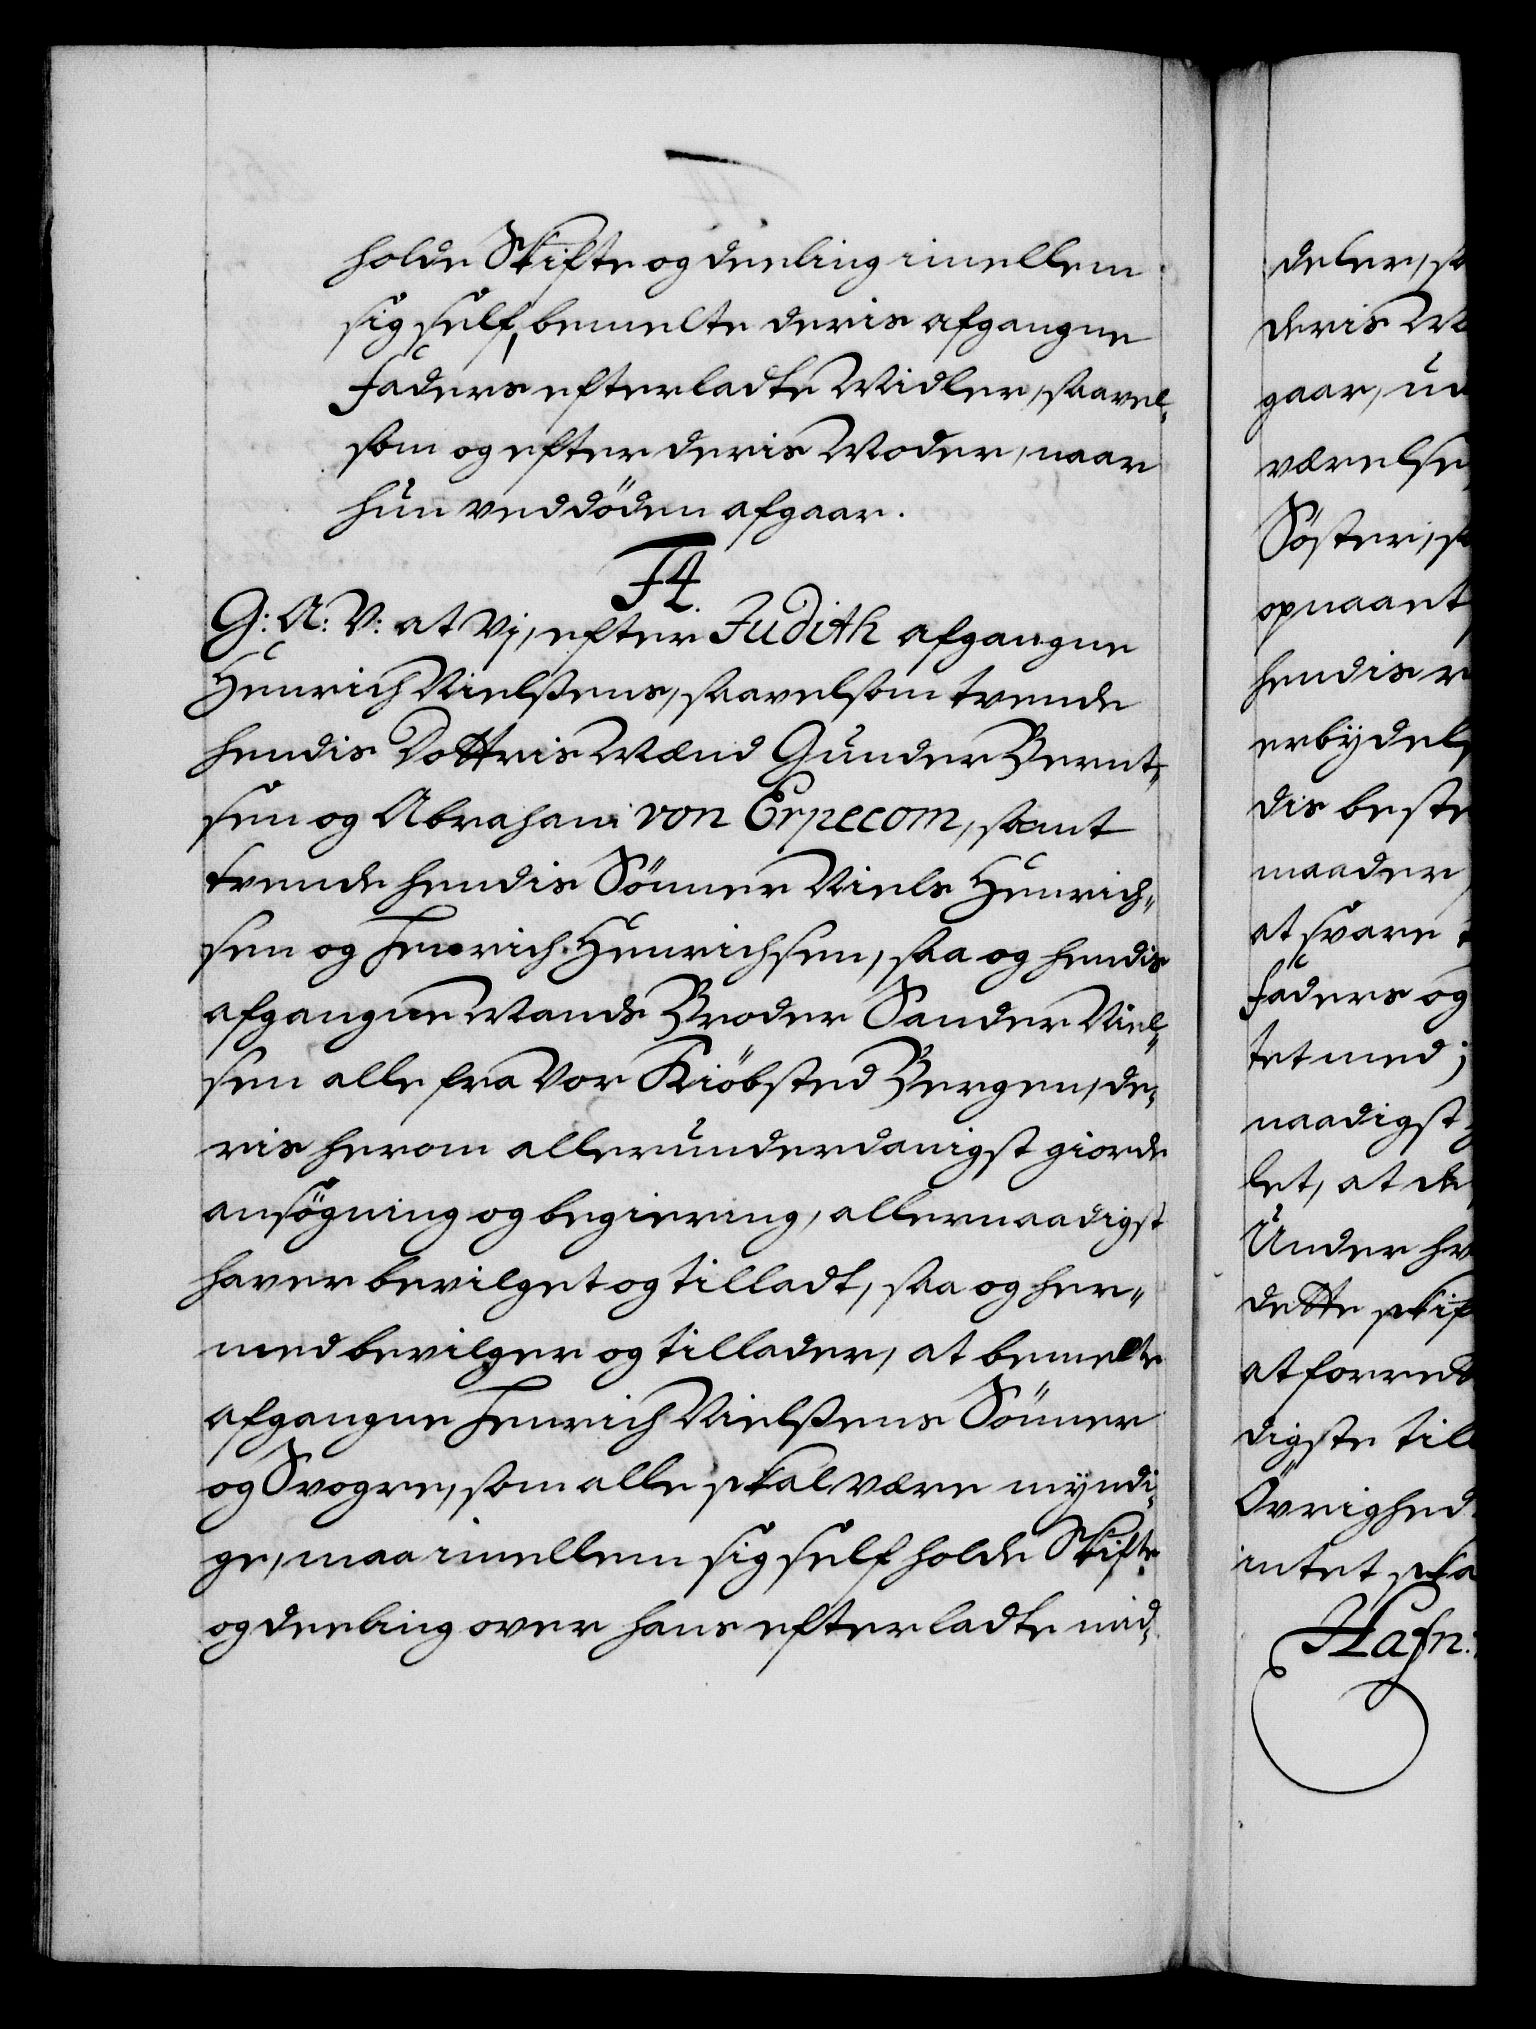 holde Skifte og deeling imellem
sig self, bemelte deris afgangne
Faders efterladte Midler, saavel-
som og efter deris Moder, naar
hun ved döden afgaar.
F4.
G: A: V: at Vj, efter Judith afgangne
Henrich Nielssens, saavelsom tvende
hendis Dottris Mænd Gunder Bernt-
sen og Abraham von Erpecom, samt
tvende hendis Sönner Niels Henrich-
sen og Henrich Henrichsen, saa og hendis
afgangne Mands Broder Sander Niel-
sen alle fra Vor Kiöbsted Bergen, de-
ris herom allerunderdanigst giorde
ansögning og begiering, allernaadigst
haver bevilget og tilladt, saa og her-
med bevilger og tillader, at bemelte
afgangne Henrich Nielssens Sönner
og Svogre, som alle skal være myndi-
ge, maa imellem sig self holde Skifte
og deeling over hans efterladte mid-
deler, sa
deris Mo
gaar, ud
værelse,
Söster, so
opnaaet
hendis
erbydel
dis beste
maader,
at svare
Faders og
tet med;
naadigst
let, at de
Under hv
dette skif
at forrett
digste till
Övrighed
intet ska
Hafn: